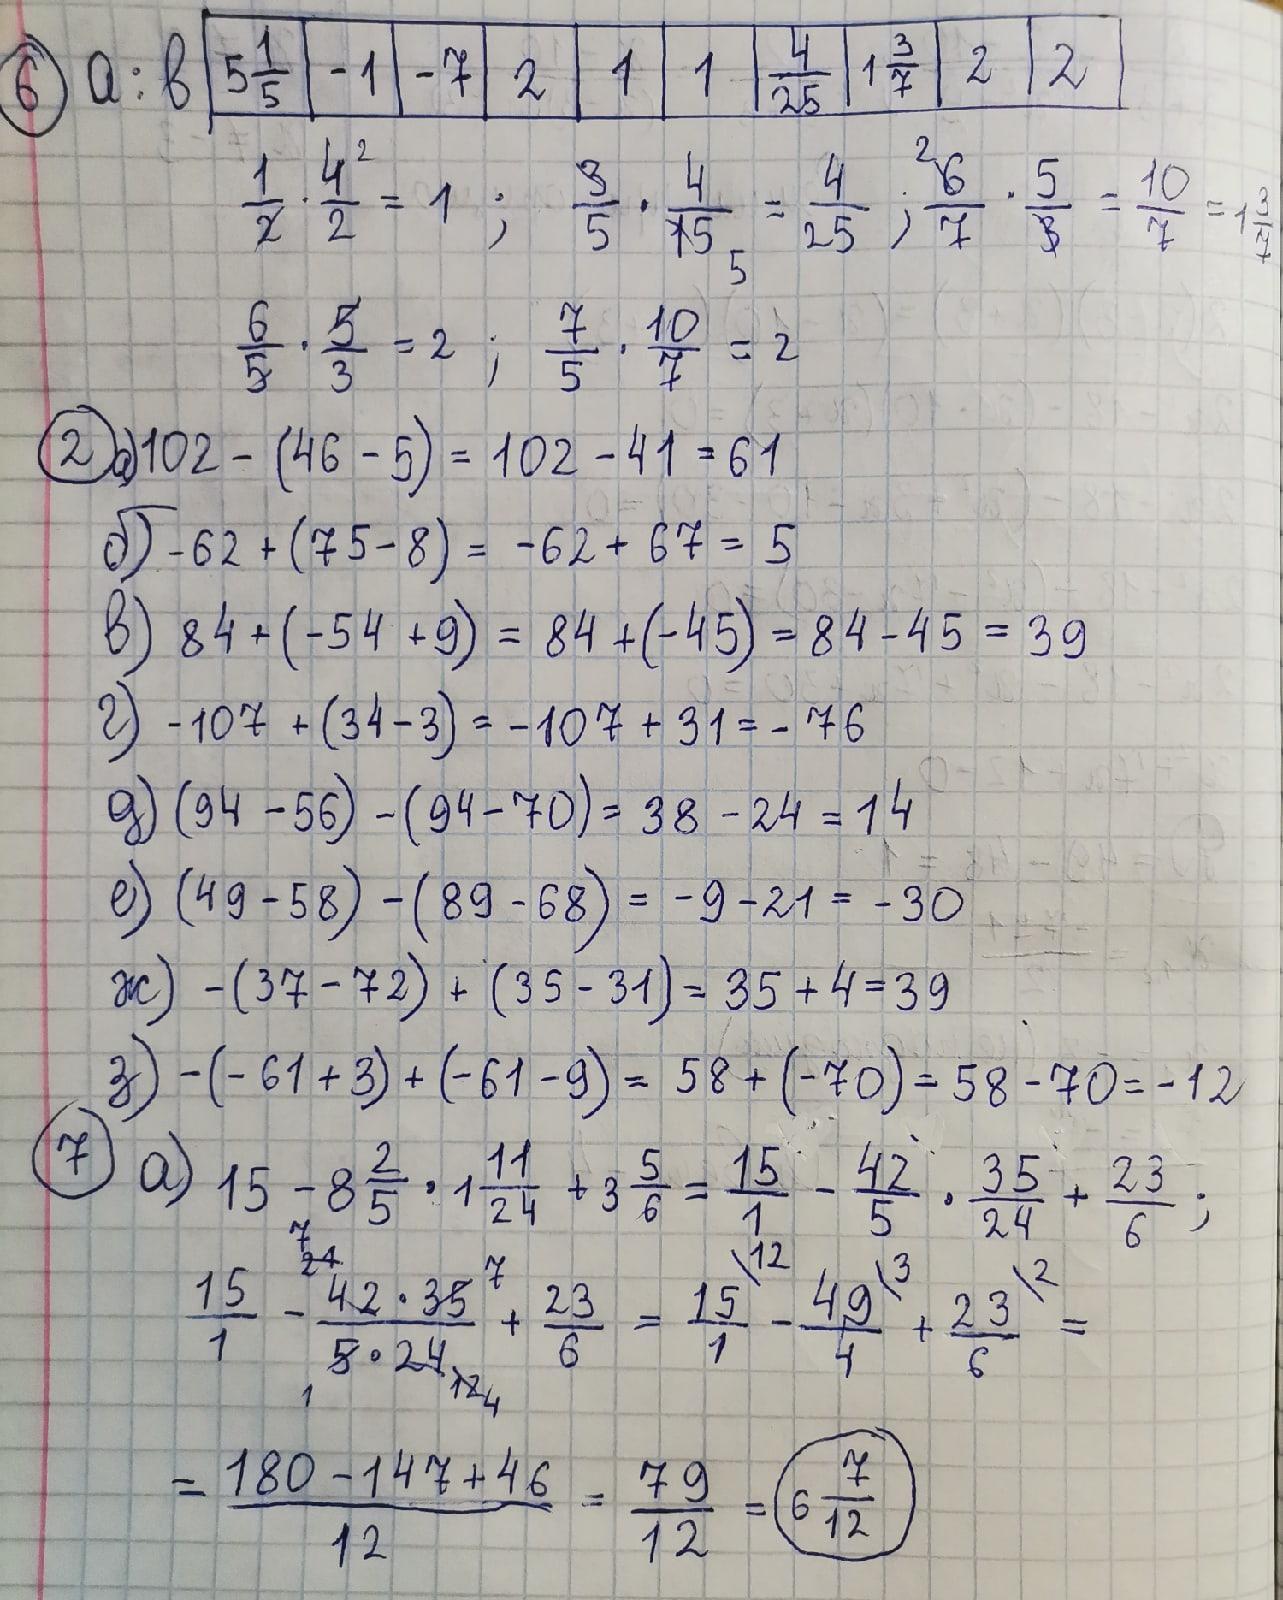 6 а:в 5 1/5 -1 -7 2 1 1 4/25 1 3/7 2 2
1/2 · 4/2 ² = 1 ; 3/5 · 4/15 5 = 4/25 ; ² 6/7 · 5/3 = 10/7 = 1 3/7
6/5 · 5/3 = 2 ; 7/5 · 10/7 = 2
2 а) 102 - (46 - 5) = 102 - 41 = 61
б) -62 + (75 - 8) = -62 + 67 = 5
в) 84 + (-54 + 9) = 84 + (-45) = 84 - 45 = 39
г) -107 + (34 - 3) = -107 + 31 = -76
д) (94 - 56) - (94 - 70) = 38 - 24 = 14
е) (49 - 58) - (89 - 68) = -9 - 21 = -30
ж) -(37 - 72) + (35 - 31) = 35 + 4 = 39
з) -(-61 + 3) + (-61 - 9) = 58 + (-70) = 58 - 70 = -12
7 а) 15 - 8 2/5 · 1 11/24 + 3 5/6 = 15/1 - 42/5 · 35/24 + 23/6 ;
7 21 7 \12 \3 \2
15/1 - 42·35/5·24 + 23/6 = 15/1 - 49/4 + 23/6 =
1 12 4
= 180 - 147 + 46/12 = 79/12 = 6 7/12